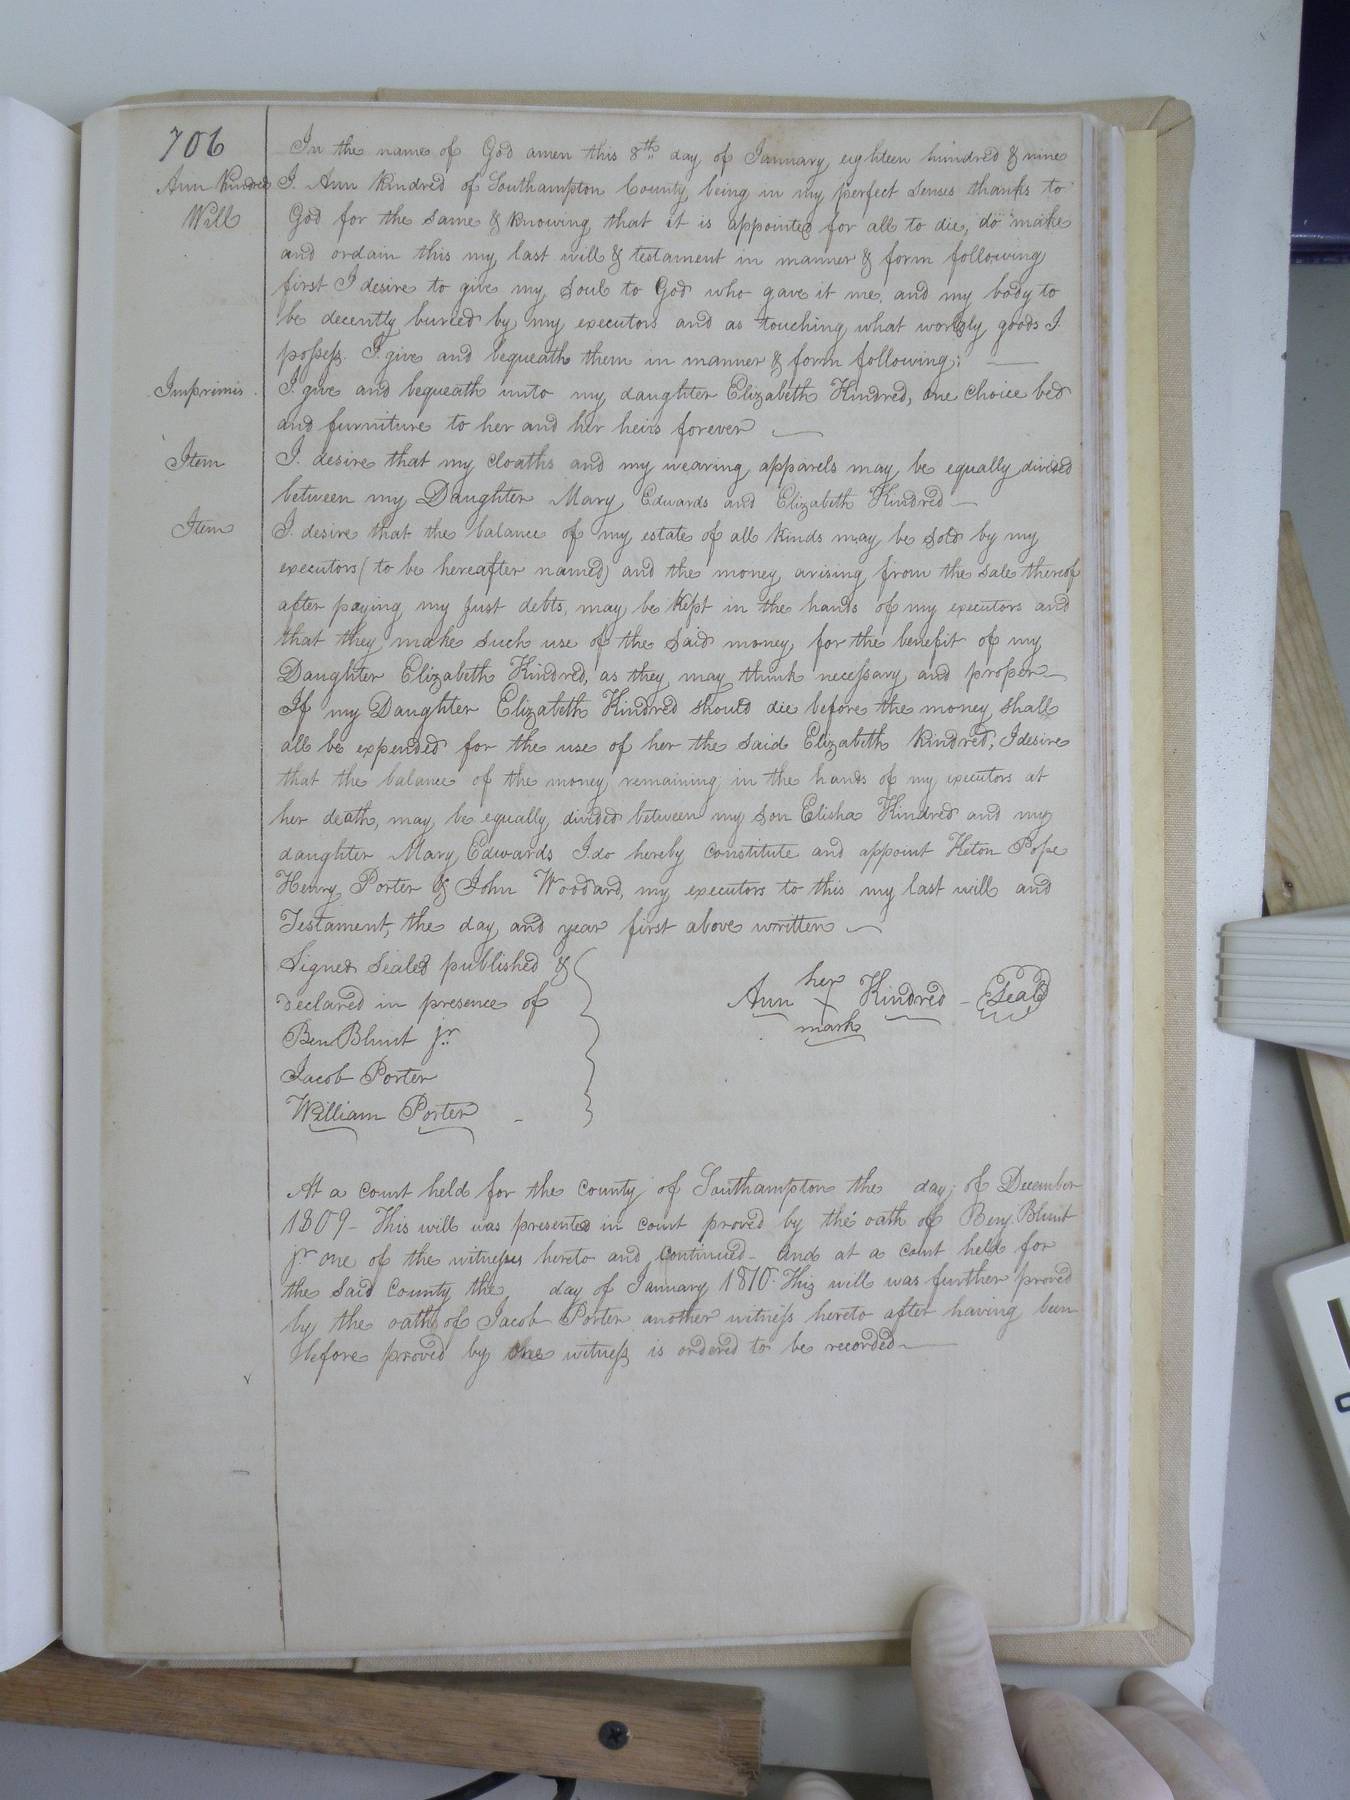 706
In the name of God amen this 8th day of January eighteen hundred & nine
Ann Kindred I. Ann Kindred of Southampton County being in my perfect senses thanks to
Will God for the same & knowing that it is appointed for all to die, do make
and ordain this my last will & testament in manner & form following
first I desire to give my soul to God who gave it me, and my body to
be decently buried by my executors and as touching what worldly goods I
possess. I give and bequeath them in manner & form following:
Imprimis I. give and bequeath unto my daughter Elizabeth Kindred, one choice bed
and furniture to her and her heirs forever
Item I. desire that my cloaths and my wearing apparels may be equally divided
between my Daughter Mary Edwards and Elizabeth Kindred
Item I. desire that the balance of my estate of all kinds may be sold by my
executors (to be hereafter named) and the money arising from the sale thereof
after paying my just debts, may be kept in the hands of my executors and
that they make such use of the said money for the benefit of my
Daughter Elizabeth Kindred, as they may think necessary and proper
If my Daughter Elizabeth Kindred should die before the money shall
all be expended for the use of her the said Elizabeth Kindred, I desire
that the balance of the money remaining in the hands of my executors at
her death, may be equally divided between my son Elisha Kindred and my
daughter Mary Edwards I do hereby constitute and appoint Keton Pope
Henry Porter & John Woodard, my executors to this my last will and
Testament, the day and year first above written
Signed sealed published &
declared in presence of
Ben Blunt jr.
Jacob Porter
William Porter
her
Ann X Kindred - Seal
mark
At a court held for the county of Southampton the day of December
1809 - This will was presented in court proved by the oath of Benj. Blunt
jr one of the witnesses hereto and continued - And at a court held for
the said county the day of January 1810. This will was further proved
by the oath of Jacob Porter another witness hereto after having been
before proved by one witness is ordered to be recorded